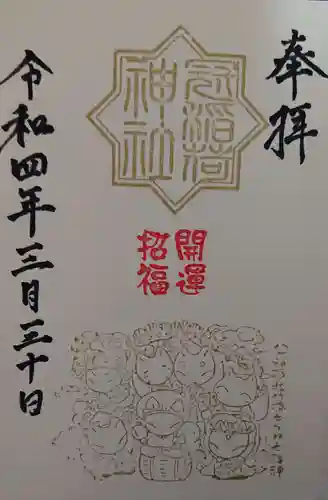 奉拝
冠稲荷
神社
開運
招福
令和四年三月三十日